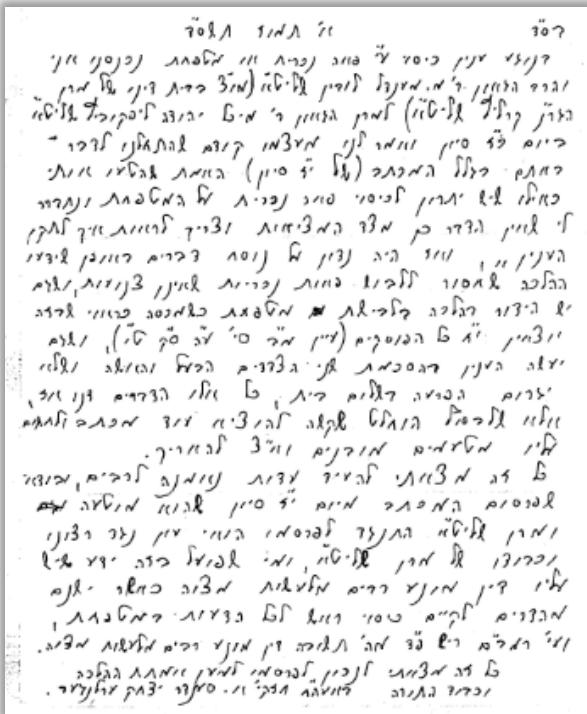 בס"ד א' תמוז תשס"ד
בנוגע ענין כיסוי ע"י פאה נכרית או מטפחת נכנסנו אני
והרב הגאון ר' מ. מענדל לובין שליט"א (מו"צ בבית דינו של מרן
הגר"נ קרליץ שליט"א) למרן הגאון ר' מיכל יהודה ליפקוביץ שליט"א
ביום כ"ז סיון ואמר לנו מעצמו קודם שהתחלנו לדבר -
באתם בגלל המכתב (של י"ז סיון) האמת שהטעו אותי
כאילו שיש יתרון לכיסוי פאה נכרית על המטפחת ונתברר
לי שאין הדבר כן מצד המציאות וצריך לראות איך לתקן
הענין,, ואז היה נדון על נוסח דברים באופן שידעו
ההלכה שאסור ללבוש פאות נכריות שאינן צנועות, ושגם
יש הידור בהלכה בלבישת מטפחת כשמכסה כראוי שבזה
יוצאין י"ח כל הפוסקים (עיין מ"ב סי' ע"ה סק ט"ו), ושגם
יעשה הענין בהסכמת שני הצדדים הבעל והאשה ושלא
יגרום הפרעה בשלום בית, כל אלו הדברים דנו אז,
אלא שלבסוף הוחלט שקשה להוציא עוד מכתב ולחתום
עליו מטעמים מובנים ואי"צ להאריך.
כל זה מצאתי להעיד עדות נאמנה לרבים, ובודאי
שפרסום המכתב מיום י"ז סיון שהוא מוטעה
ומרן שליט"א התנגד לפרסמו הואי עון נגד רצונו
וכבודו של מרן שליט"א, ומי שפועל בזה ידע שיש
עליו דין מונע רבים מלעשות מצוה כאשר ישנם
מהדרים לקיים כיסוי ראש לכל הדעות במטפחת,
ועי' רמב"ם ריש פ"ד מה' תשובה דין מונע רבים מלעשות מצוה.
כל זה מצאתי לנכון לפרסמו למען אמתת ההלכה
וכבוד התורה באעה"ח חזקי' א. סענדר יצחק ערלנגער.